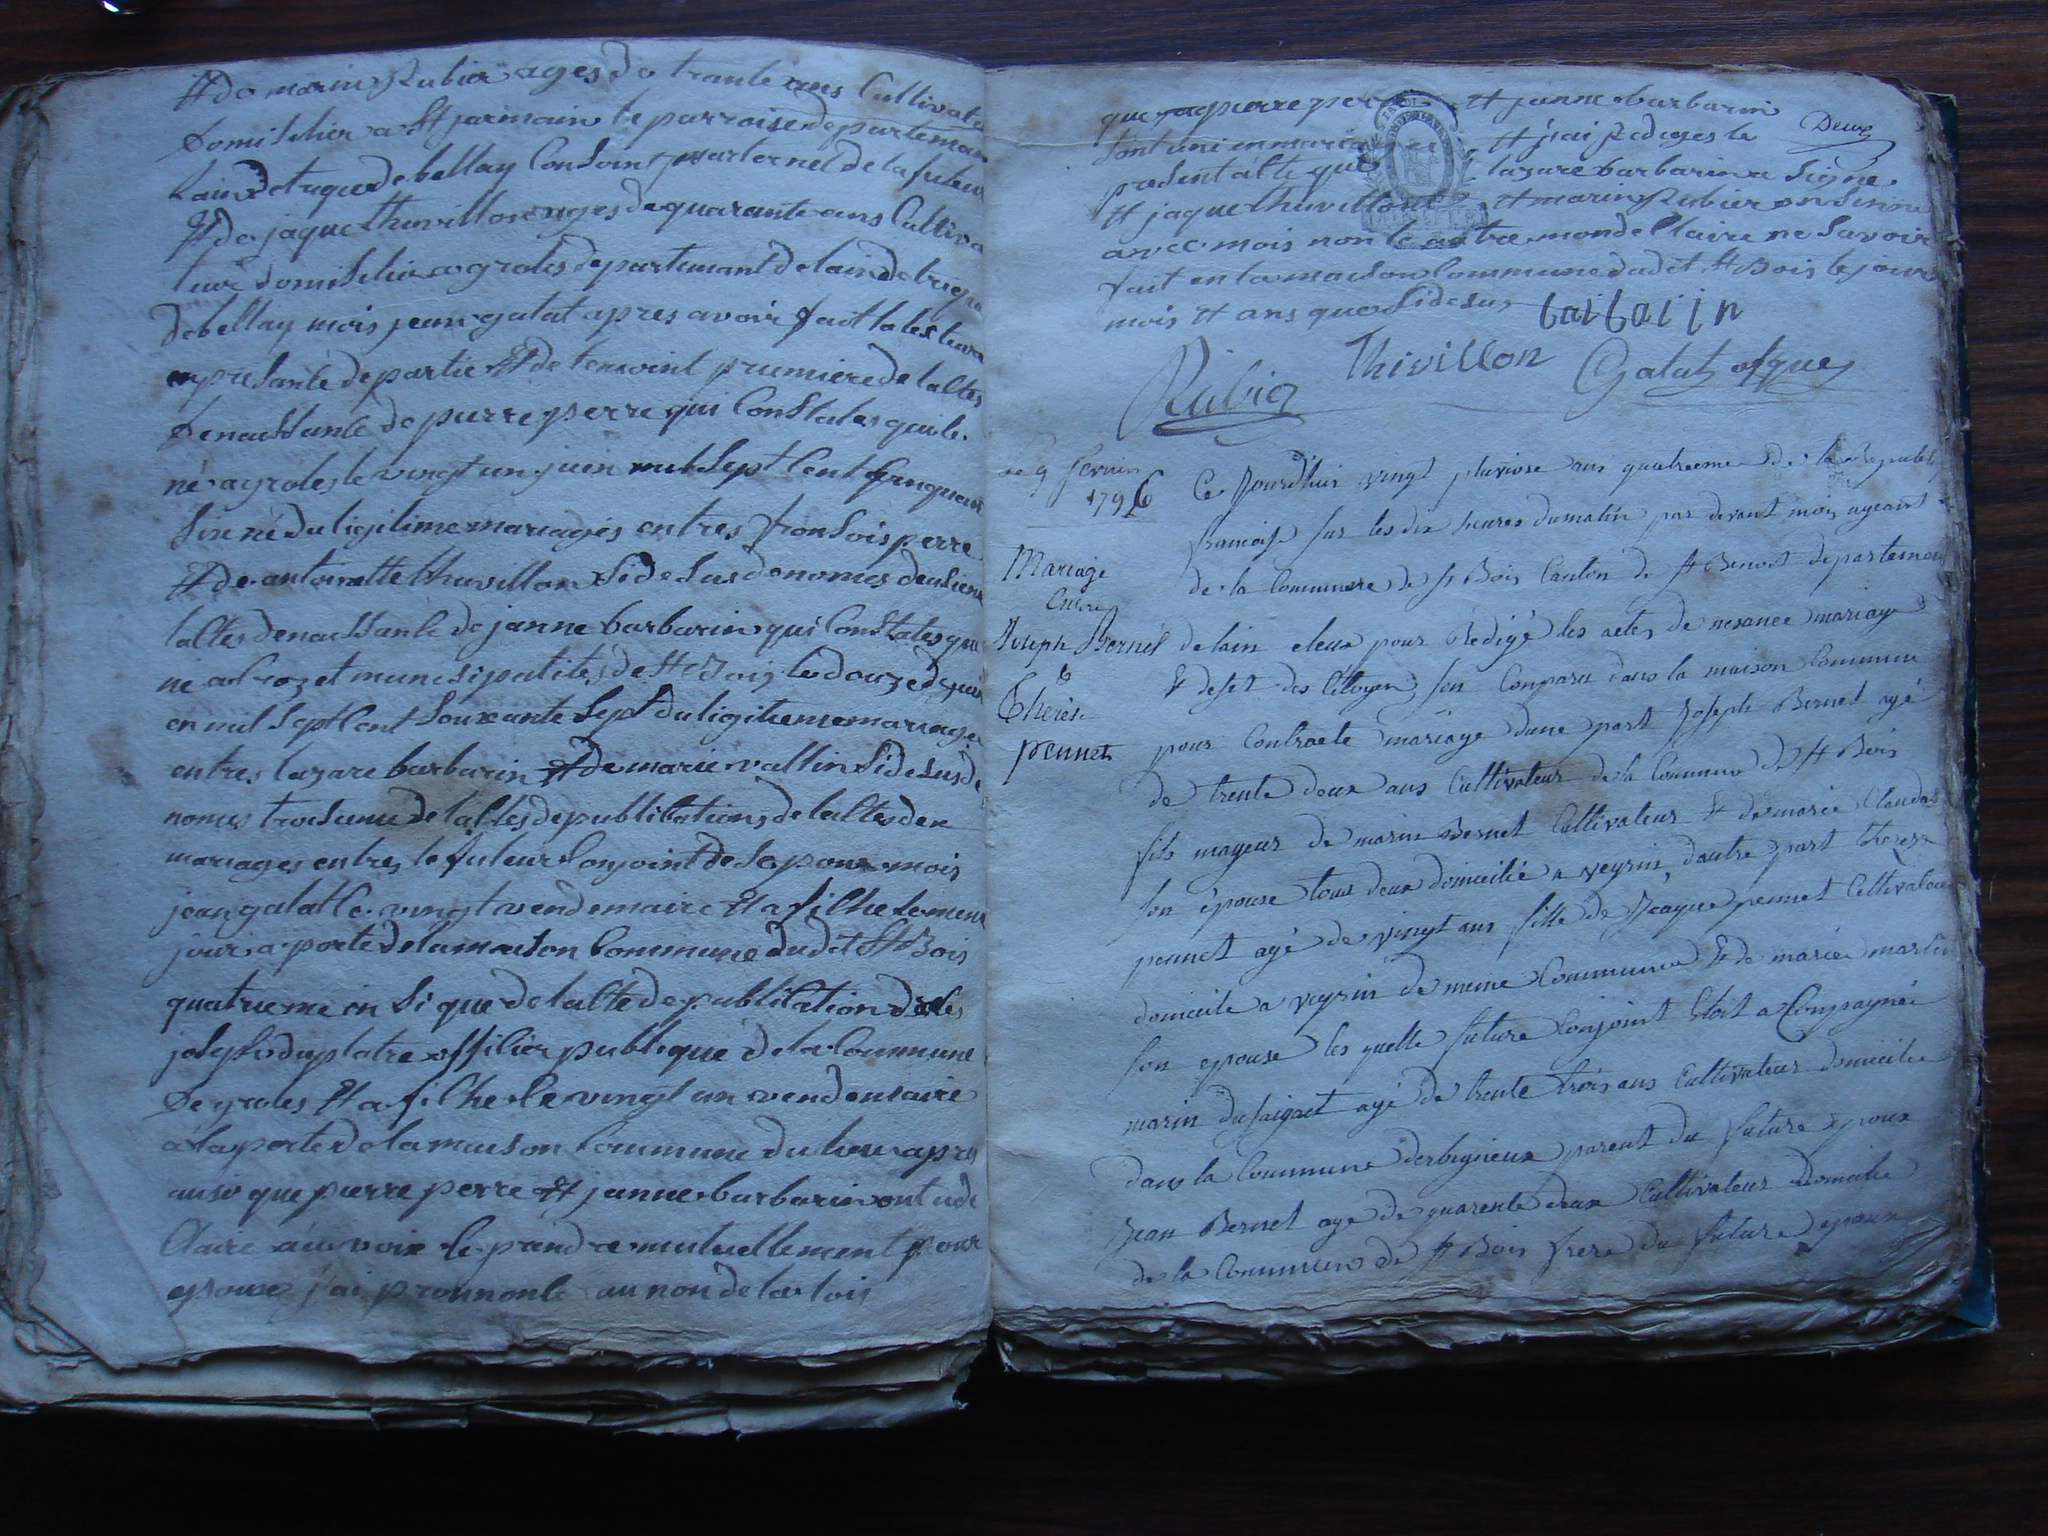 & de marin Rubier ages de trante ans Cultivate
domisilier a St jermain le parroise departemen
Lain detrique de bellay Consoint parternel de la futeur
& de jaque thuvillon ages de quarante ans Cultiva
teur domisilier a groles departemant de lain detrique
de bellay mois jean galat apres avoir fait la lecteure
en presante de partie & de temoint premiere de lactes
denaissante de pierre perre qui Constates quil e
né a groles le vingt un juin mil sept Cent
né du ligitime mariages entres fransois perre
& de antoinette thuvillon si desus denomes
lactes denaissante de janne barbarin qui Constates que
né municipalites de St Bois le douze
en mil sept Cent souxante sept du ligitieme mariages
entres lazare barbarin & de marie vallin si desus de
nomes de lactes de publications de lactes de
mariages entres le futeur Conjoint mois
jean galat le vingt vendemaire & afilhe le meme
jour a porte de la maison Commune dudit St Bois
quatrieme in si que de lacte de publication
joseph duplatre offisier publique de la Commune
de groles & afilhe le vingt un vendemaire
a la porte de la maison Commune du lieu apres
ausi que pierre perre & janne barbarin ont
Claire a voix mutuellement pour
epoux j'ai prononle au non de la lois
que pierre per & janne barbarin
sont uni en maria & j'ai Rediges le
Deux
present acte que lazare barbarin a signe
& jaque thuvillon & marin Rubier
avec mois non le autre mon de Claire ne savoir
fait en la maison Commune dudit St Bois le jour
mois & ans que si desus barbarin
Rubier Thivillon Galat
9 fevrier
1796
Mariage
Entre
Joseph Bernet
&
Therese
pennet
Ce jourdhui vingt pluviose an quatrieme de la Republi
francaise sur les dix heures du matin par devant moi agent
de la Commune de St Bois Canton de St Benoit departemen
de lain eleu pour Redigé les actes de nesance mariage
& deset des Citoyens son Comparu dans la maison Commun
pour Contracte mariage dune part Joseph Bernet agé
de trente deux ans Cultivateur de la Commune de St Bois
fils mageur de marin Bernet Cultivateur & de marie Claudas
son épouse tous deux domicilié a veyrin, dautre part therese
pennet agé de vingt ans fille de Jcaque pennet Cultivateur
domicile a veyrin de meme Commune & de marie martin
son epouse les quelle future Conjoint etoit a Compagnée
marin dufaignet agé de trente trois ans Cultivateur domicilie
dans la Commune derbignieux parent du future epoux
Jean Bernet age de quarente deux Cultivateur Domicile
de la Commune de St Bois frere du future epoux